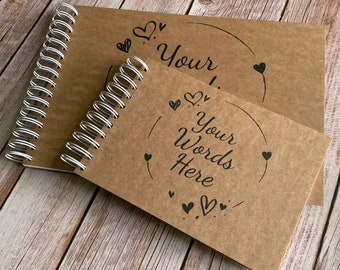 Your
Your
Words
Here